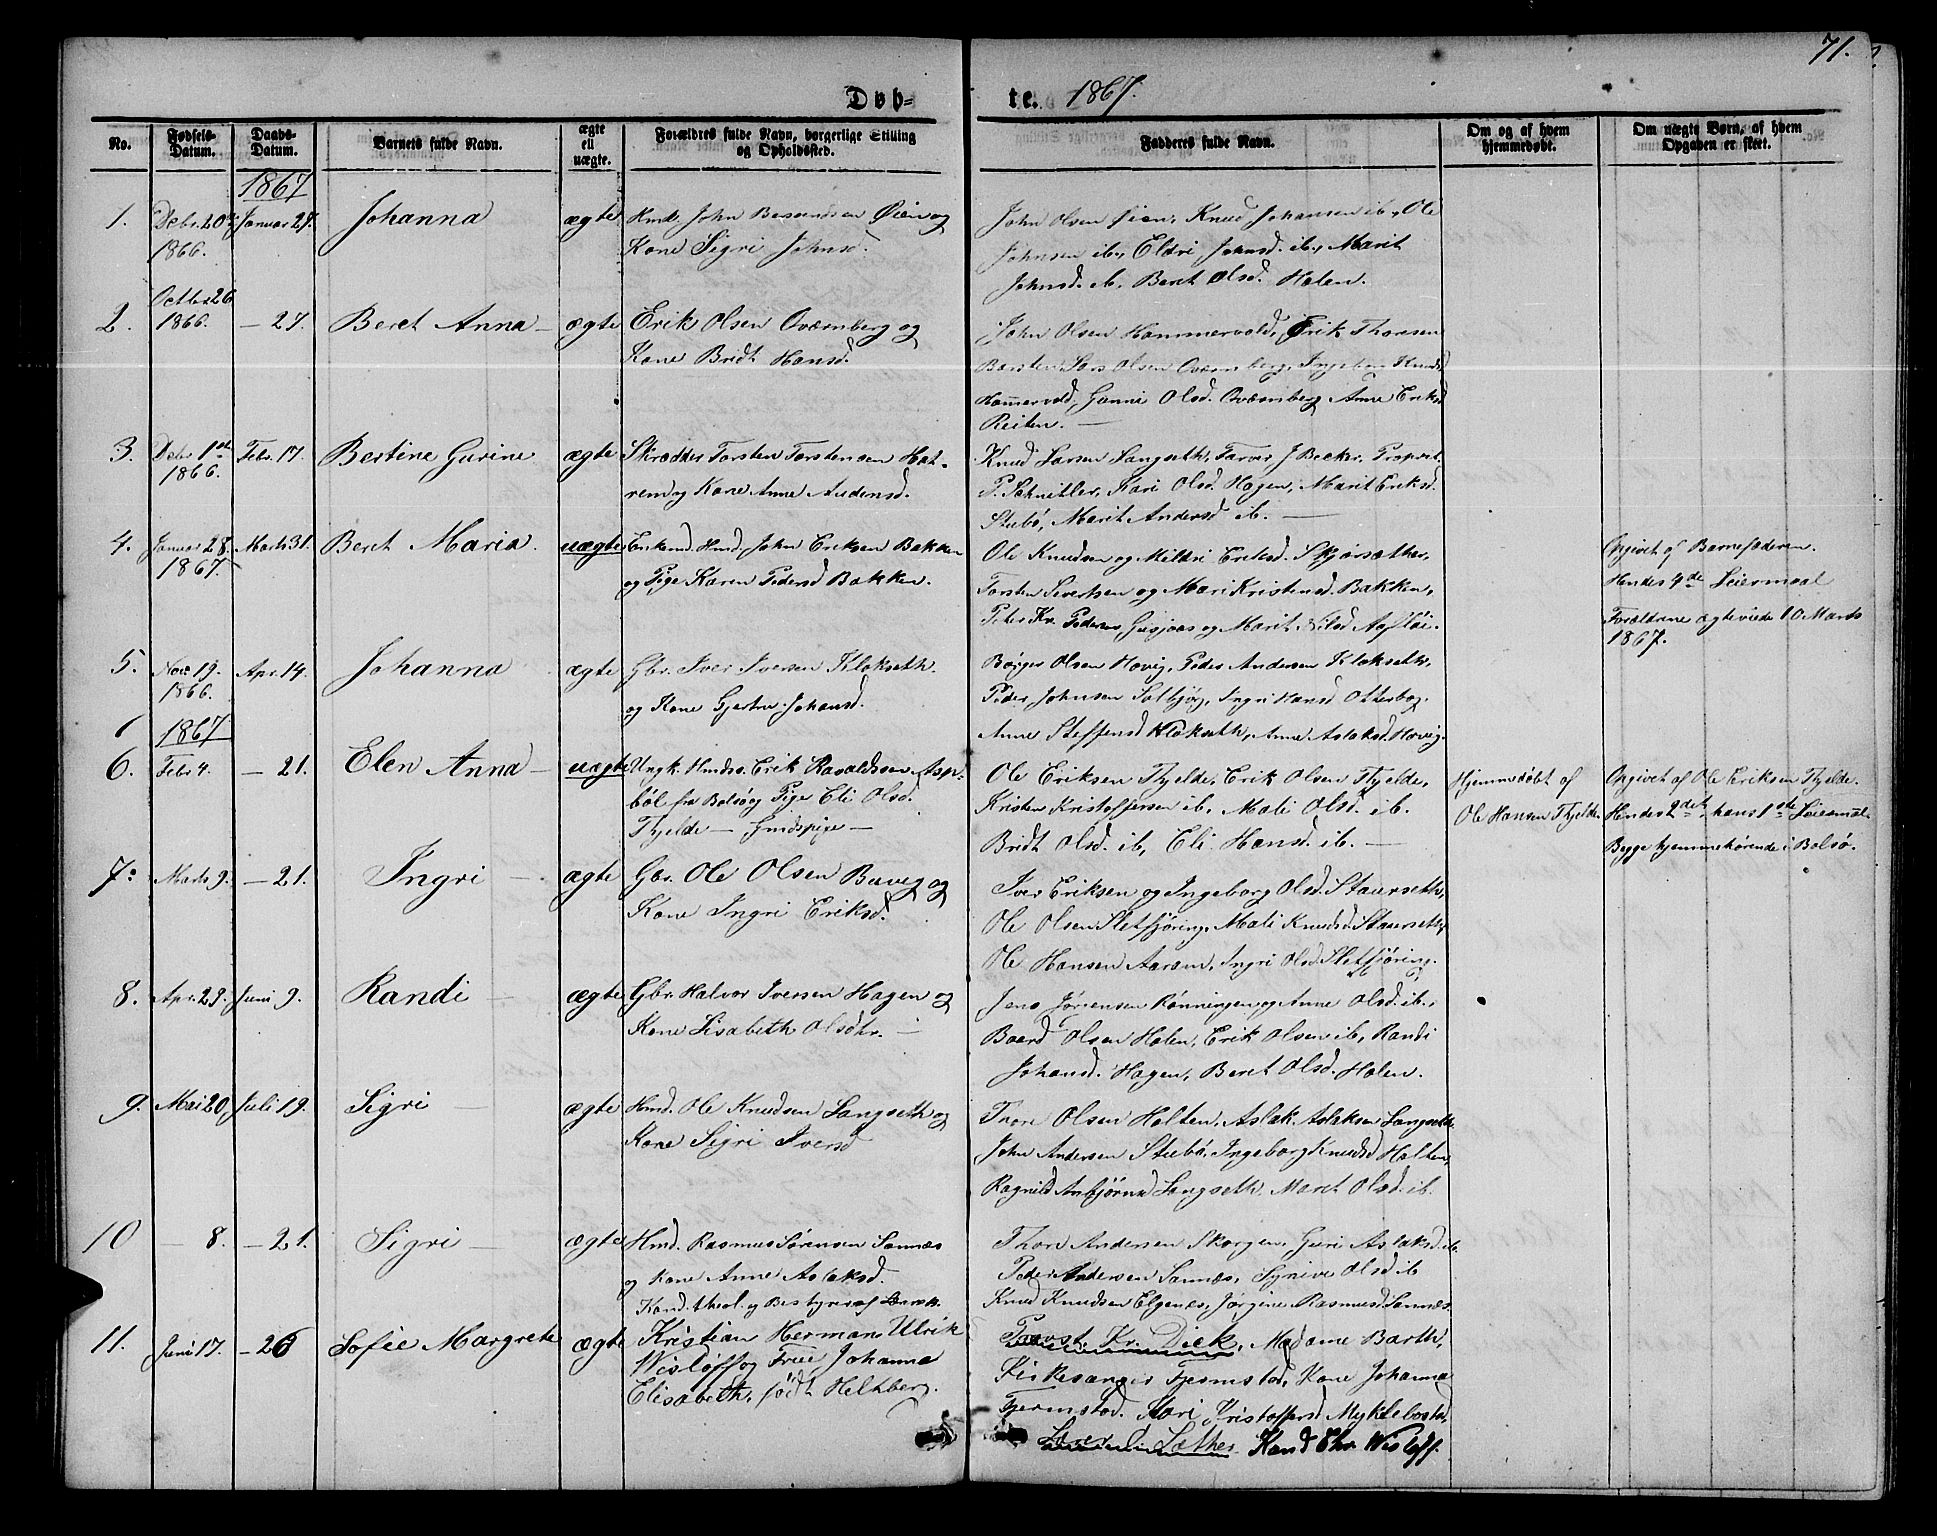 71.
Døb-
te. 1867.
No.
Fødsels-
Datum.
Daabs-
Datum.
Barnets fulde Navn.
ægte
ell
uægte.
Forældres fulde Navn, borgerlige Stilling
og Opholdssted.
Fadderes fulde Navn.
Om og af hvem
hjemmedøbt.
Om uægte Børn, af hvem
Opgaven er skeet.
1867
1. Debr. 20de 1866. Januar 27. Johanna ægte
Hmd. John Bersendsen Øien og
Kone Sigri Johnsd.
John Olsen Øien, Knud Johansen ib., Ole
Johnsen ib., Eldri Johnsd. ib., Marit
Johnsd. ib. Beret Olsd. Holen.
2. Octbr 26 1866. — 27. Beret Anna — ægte
Erik Olsen Oværnberg og
Kone Bridt Hansd.
John Olsen Hammervold, Erik Thoresen
Barsten, Lars Olsen Oværnberg, Ingebor Knudsd
Hamervold, Gunni Olsd. Oværnberg Anne Eriksd
Reiten. —
3. Debr 1ste 1866. Febr. 17. Bertine Gurine ægte
Skrædder Torsten Torstensen Hat-
rem og Kone Anne Audensd.
Knud Larsen Langseth, Farver J Becker, Propriet.
P. Schnitler, Kari Olsd. Hagen, Marit Eriksd.
Stubø, Marit Andersd ib. —
4. Januar 28. 1867. Marts 31. Beret Maria. uægte
Enkemd. Hmd, John Eriksen Bakken
og Pige Karen Pedersd Bakken.
Ole Knudsen og Mildri Eriksd. Skjørsæther,
Torsten Sivertsen og Mari Kristensd. Bakken,
Peter Kr. Pedersen, Gusjaas og Marit Nilsd Aafløi.
Opgivet af Barnefaderen.
Hendes 4de Leiermaal
Forældrene ægteviede 10 Marts
1867.
5. Nov. 19. 1866. Apr. 14. Johanna ægte
Gbr. Iver Iversen Klokseth.
og Kone Gjertru Johansd.
Børger Olsen Hovig, Peder Andersen Klokseth,
Peder Johnsen Solbjør, Ingri Hansd Otterbog.
Anne Steffensd Klokseth, Anne Aslaksd. Hovig.
1867
6. Febr 4. — 21. Elen Anna — uægte
Ungk. Hmdss. Erik Ravaldssen Asp-
bøl fra Bolsø og Pige Eli Olsd.
Tjelde — Gmdspige —
Ole Eriksen Tjelde, Erik Olsen Tjelde,
Kristen Kristoffersen ib., Mali Olsd. ib.
Bridt Olsd. ib, Eli Hansd. ib. —
Hjemmedøbt af
Ole Hansen Tjelde.
Opgivet af Ole Eriksen Tjelde.
Hendes 2det, hans 1ste Leiermaal.
Begge hjemmehørende i Bolsø.
7. Marts 9. — 21. Ingri — ægte
Gbr. Ole Olsen Buvig og
Kone Ingri Eriksd.
Iver Eriksen og Ingeborg Olsd. Staurseth,
Ole Olsen Sletfjøring, Mali Knudsd Staurseth,
Ole Hansen Aaram, Ingri Olsd. Sletfjøring.
8. Apr. 29. Juni 9. Randi — ægte
Gbr. Halvor Iversen Hagen og
Kone Lisabeth Olsdtr. —
Jens Jørgensen Rønningen og Anne Olsd. ib.,
Baard Olsen Holen, Erik Olsen ib, Randi
Johansd. Hagen, Beret Olsd. Holen.
9. Mai 20, Juli 19. Sigri — ægte
Hmd. Ole Knudsen Langseth og
Kone Sigri Iversd
Thore Olsen Holten, Aslak Aslaksen Langseth.
John Andersen Stubø, Ingeborg Knudsd Holten,
Ragnild Anbjørnsd Langseth, Maret Olsd. ib.
10 — 8. — 21. Sigri — ægte
Hmd. Rasmus Sørensen Sannæs
og Kone Anne Aslaksd.
Thore Andersen Skorgen, Guri Aslaksd. ib.
Peder Andersen Sannæs, Synive Olsd ib
Knud Knudsen Elgenæs, Jørgine Rasmusd. Sannæs.
11. Juni 17. — 26 Sofie Margrete ægte
Kand. theol. og Bestyrer af
Kristian Herman Ulrik
Wisløff og Frue Johanne
Elisabeth, født Heltberg.
Provst Kr. Dick, Madame Barth,
Kirkesanger Fjermstad, Kone Johanna
Fjermstad. Kari Kristoffersd Myklebostad,
Sæther Kand Chr Wisløff.